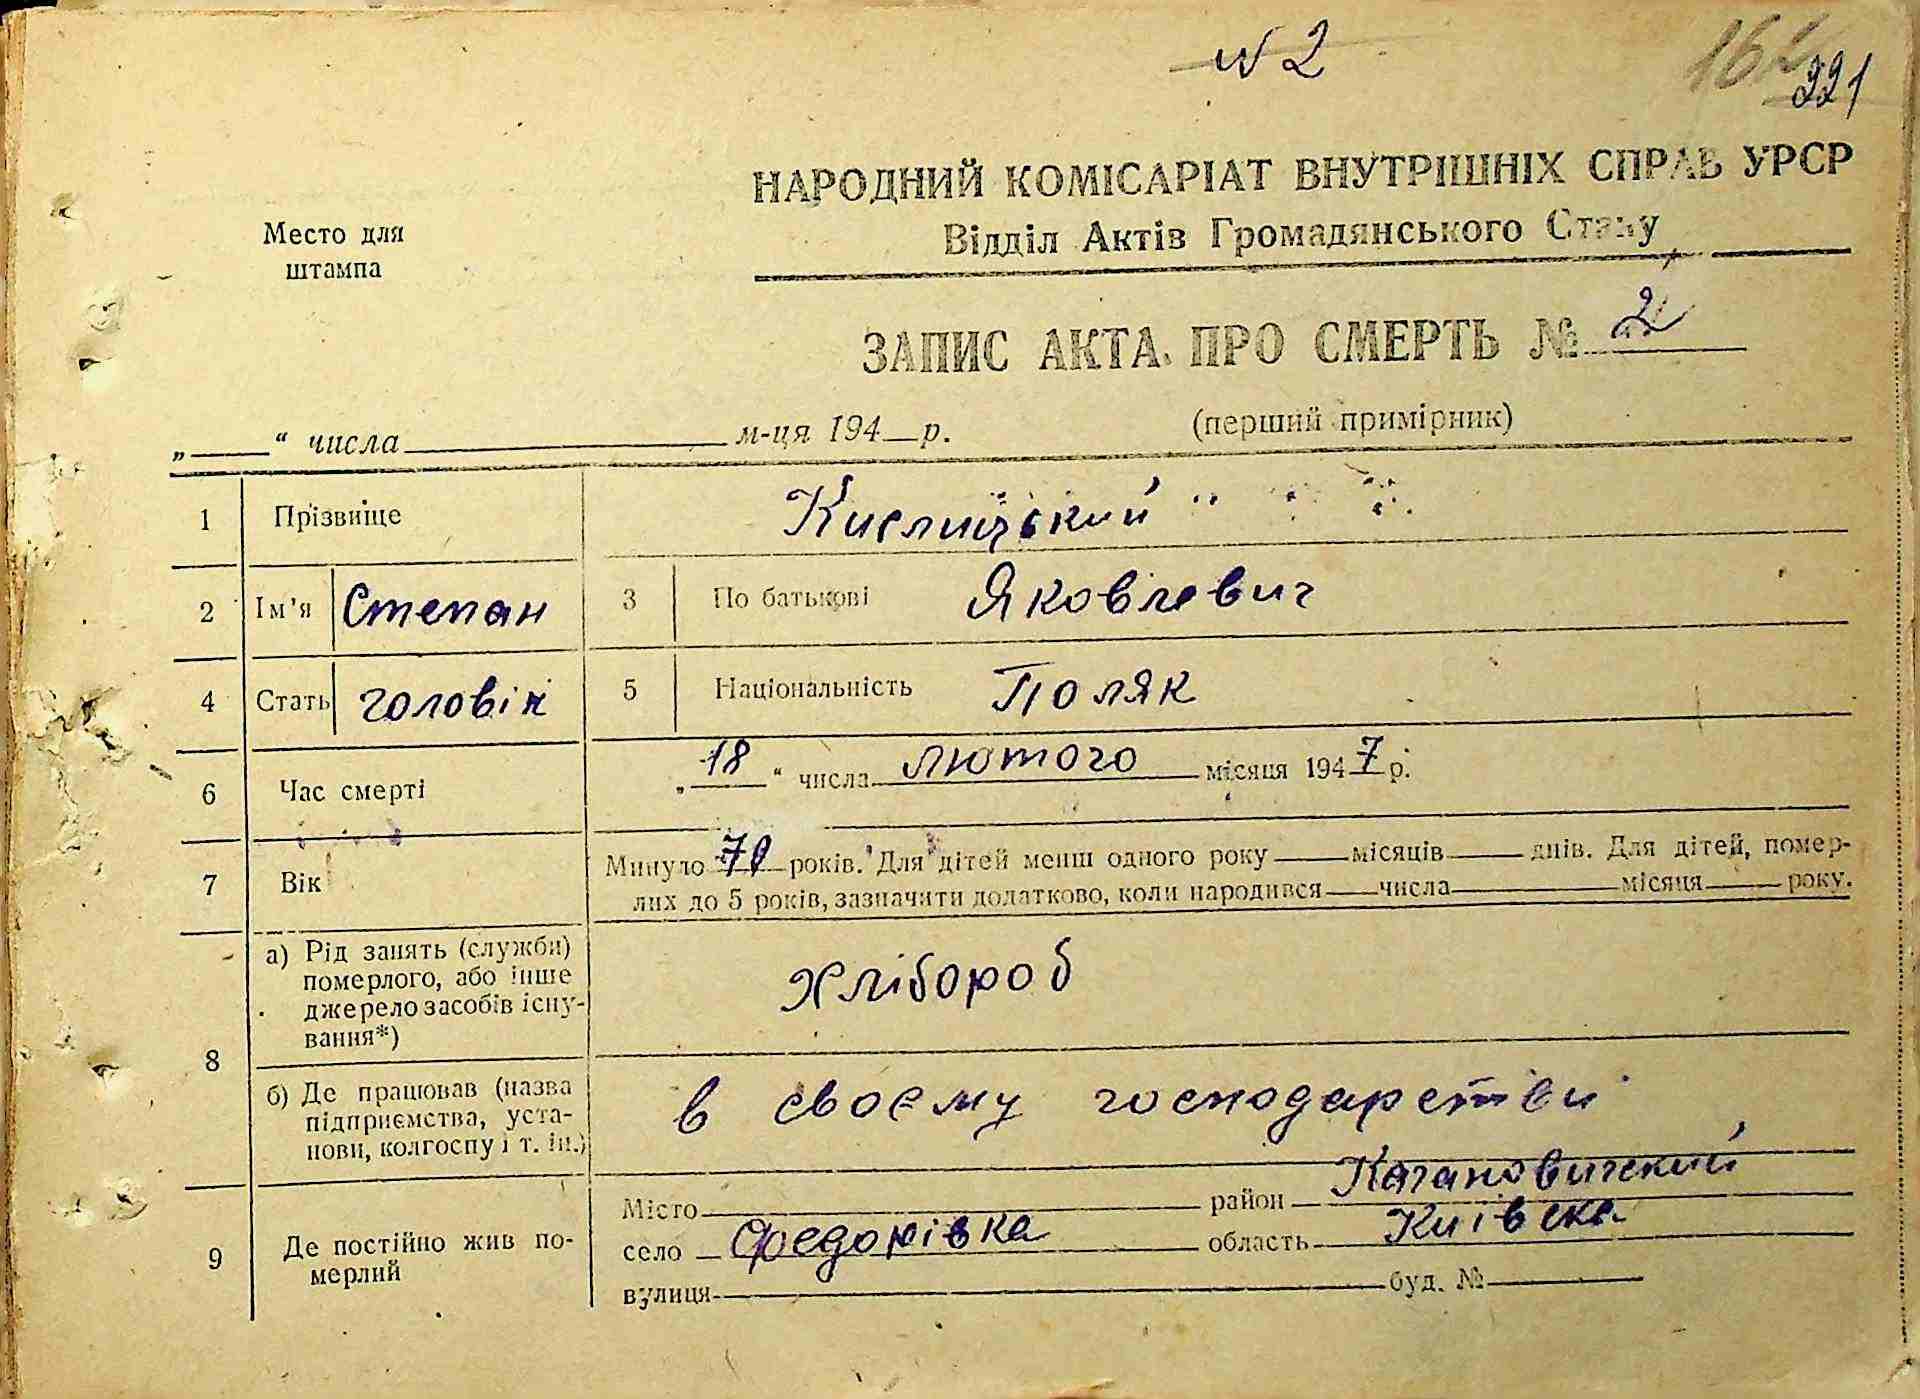 № 2
221
НАРОДНИЙ КОМІСАРІАТ ВНУТРІШНІХ СПРАВ УРСР
Відділ Актів Громадянського Стану
Место для
штампа
ЗАПИС АКТА ПРО СМЕРТЬ № 2
(перший примірник)
„____“ числа ____ м-ця 194__р.
1 Прізвище Кислицький
2 Ім'я Степан 3 По батькові Яковлевич
4 Стать чоловік 5 Національність Поляк
6 Час смерті „18“ числа лютого місяця 1947 р.
7 Вік Минуло років. Для дітей менш одного року ____ місяців ____ днів. Для дітей, помер-
лих до 5 років, зазначити додатково, коли народився ____ числа ____ місяця ____ року.
8 а) Рід занять (служби)
померлого, або інше
джерело засобів існу-
вання*) Хлібороб
б) Де працював (назва
підприємства, уста-
нови, колгоспу і т. ін.) в своєму господарстві
9 Де постійно жив по-
мерлий
Місто ____ район Кагановичский
село Федорівка область Київска
вулиця ____ буд. № ____